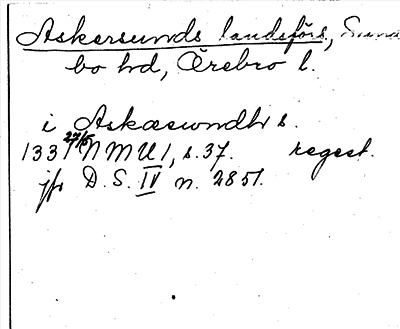 Askersunds landsförs., Sund
bo hd, Örebro l.
i Askæsundhr s.
1331 27/5 NMU 1, s. 37. regest.
jfr D. S. IV n. 2851.